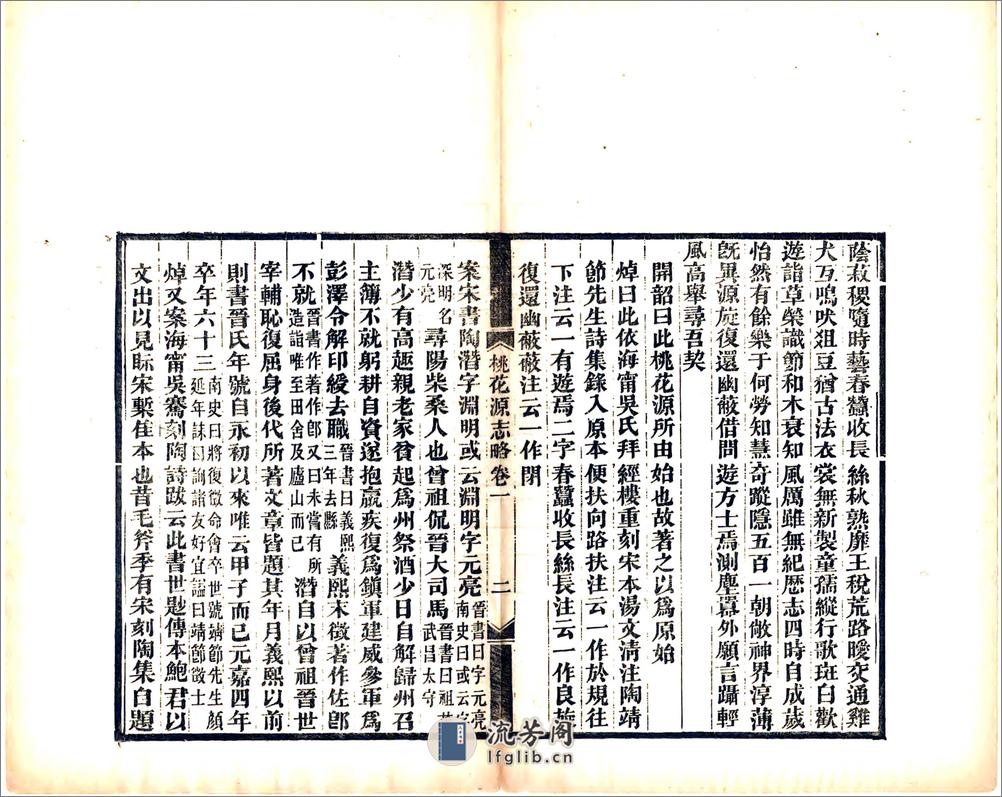 蔭菽稷隨時藝春蠶收長絲秋熟靡王稅荒路曖交通雞
犬互鳴吠俎豆猶古法衣裳無新製童孺縱行歌斑白歡
遊詣草榮識節和木衰知風厲雖無紀歷志四時自成歲
怡然有餘樂于何勞知慧奇蹤隱五百一朝敞神界淳薄
旣異源旋復還幽蔽借問遊方士焉測塵囂外願言躡輕
風高舉尋吾契
開韶曰此桃花源所由始也故著之以爲原始
焯曰此依海甯吳氏拜經樓重刻宋本湯文清注陶靖
節先生詩集錄入原本便扶向路扶注云一作於規往
下注云一有遊焉二字春蠶收長絲長注云一作良旋
復還幽蔽蔽注云一作閉
桃花源志略卷一
二
案宋書陶潛字淵明或云淵明字元亮晉書曰字元亮南史曰或云字
深明名元亮尋陽柴桑人也曾祖侃晉大司馬晉書曰祖茂武昌太守
潛少有高趣親老家貧起爲州祭酒少日自解歸州召
主簿不就躬耕自資遂抱羸疾復爲鎭軍建威參軍爲
彭澤令解印綬去職晉書曰義熙三年去縣義熙末徵著作佐郎
不就晉書作著作郎又曰未嘗有所造詣唯至田舍及廬山而已潛自以曾祖晉世
宰輔恥復屈身後代所著文章皆題其年月義熙以前
則書晉氏年號自永初以來唯云甲子而已元嘉四年
卒年六十三南史曰將復徵命會卒世號靖節先生顏延年誄曰詢諸友好宜諡曰靖節徵士
焯又案海甯吳騫刻陶詩跋云此書世尟傳本鮑君以
文出以見眎宋槧佳本也昔毛斧季有宋刻陶集自題
流芳閣
lfglib.cn